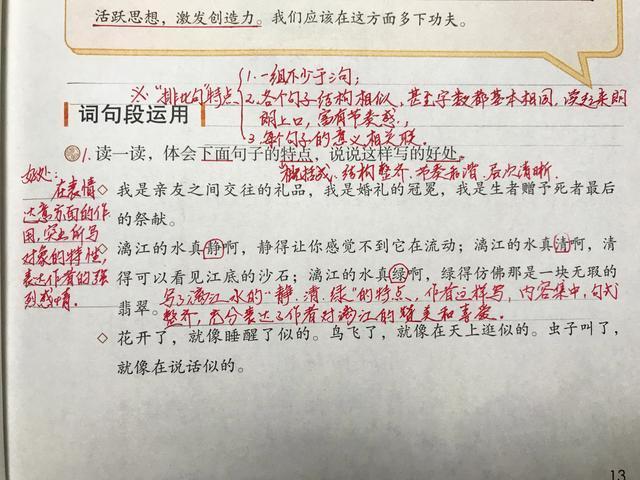 活跃思想，激发创造力。我们应该在这方面多下功夫。
※"排比句"特点
1.一组不少于三句；
2.各个句子结构相似，甚至字数都基本相同，读起来朗
朗上口，富有节奏感；
3.每个句子的意义相关联。
词句段运用
1.读一读，体会下面句子的特点，说说这样写的好处。
结构整齐、节奏和谐、层次清晰
好处：
在表情
达意方面的作
用，突出所写
对象的特性，
表达作者的强
烈感情。
◇ 我是亲友之间交往的礼品，我是婚礼的冠冕，我是生者赠予死者最后
的祭献。
◇ 漓江的水真静啊，静得让你感觉不到它在流动；漓江的水真清啊，清
得可以看见江底的沙石；漓江的水真绿啊，绿得仿佛那是一块无瑕的
翡翠。
写了漓江水的"静、清、绿"的特点，作者这样写，内容集中，句式
整齐，充分表达了作者对漓江的赞美和喜爱。
◇ 花开了，就像睡醒了似的。鸟飞了，就像在天上逛似的。虫子叫了，
就像在说话似的。
13